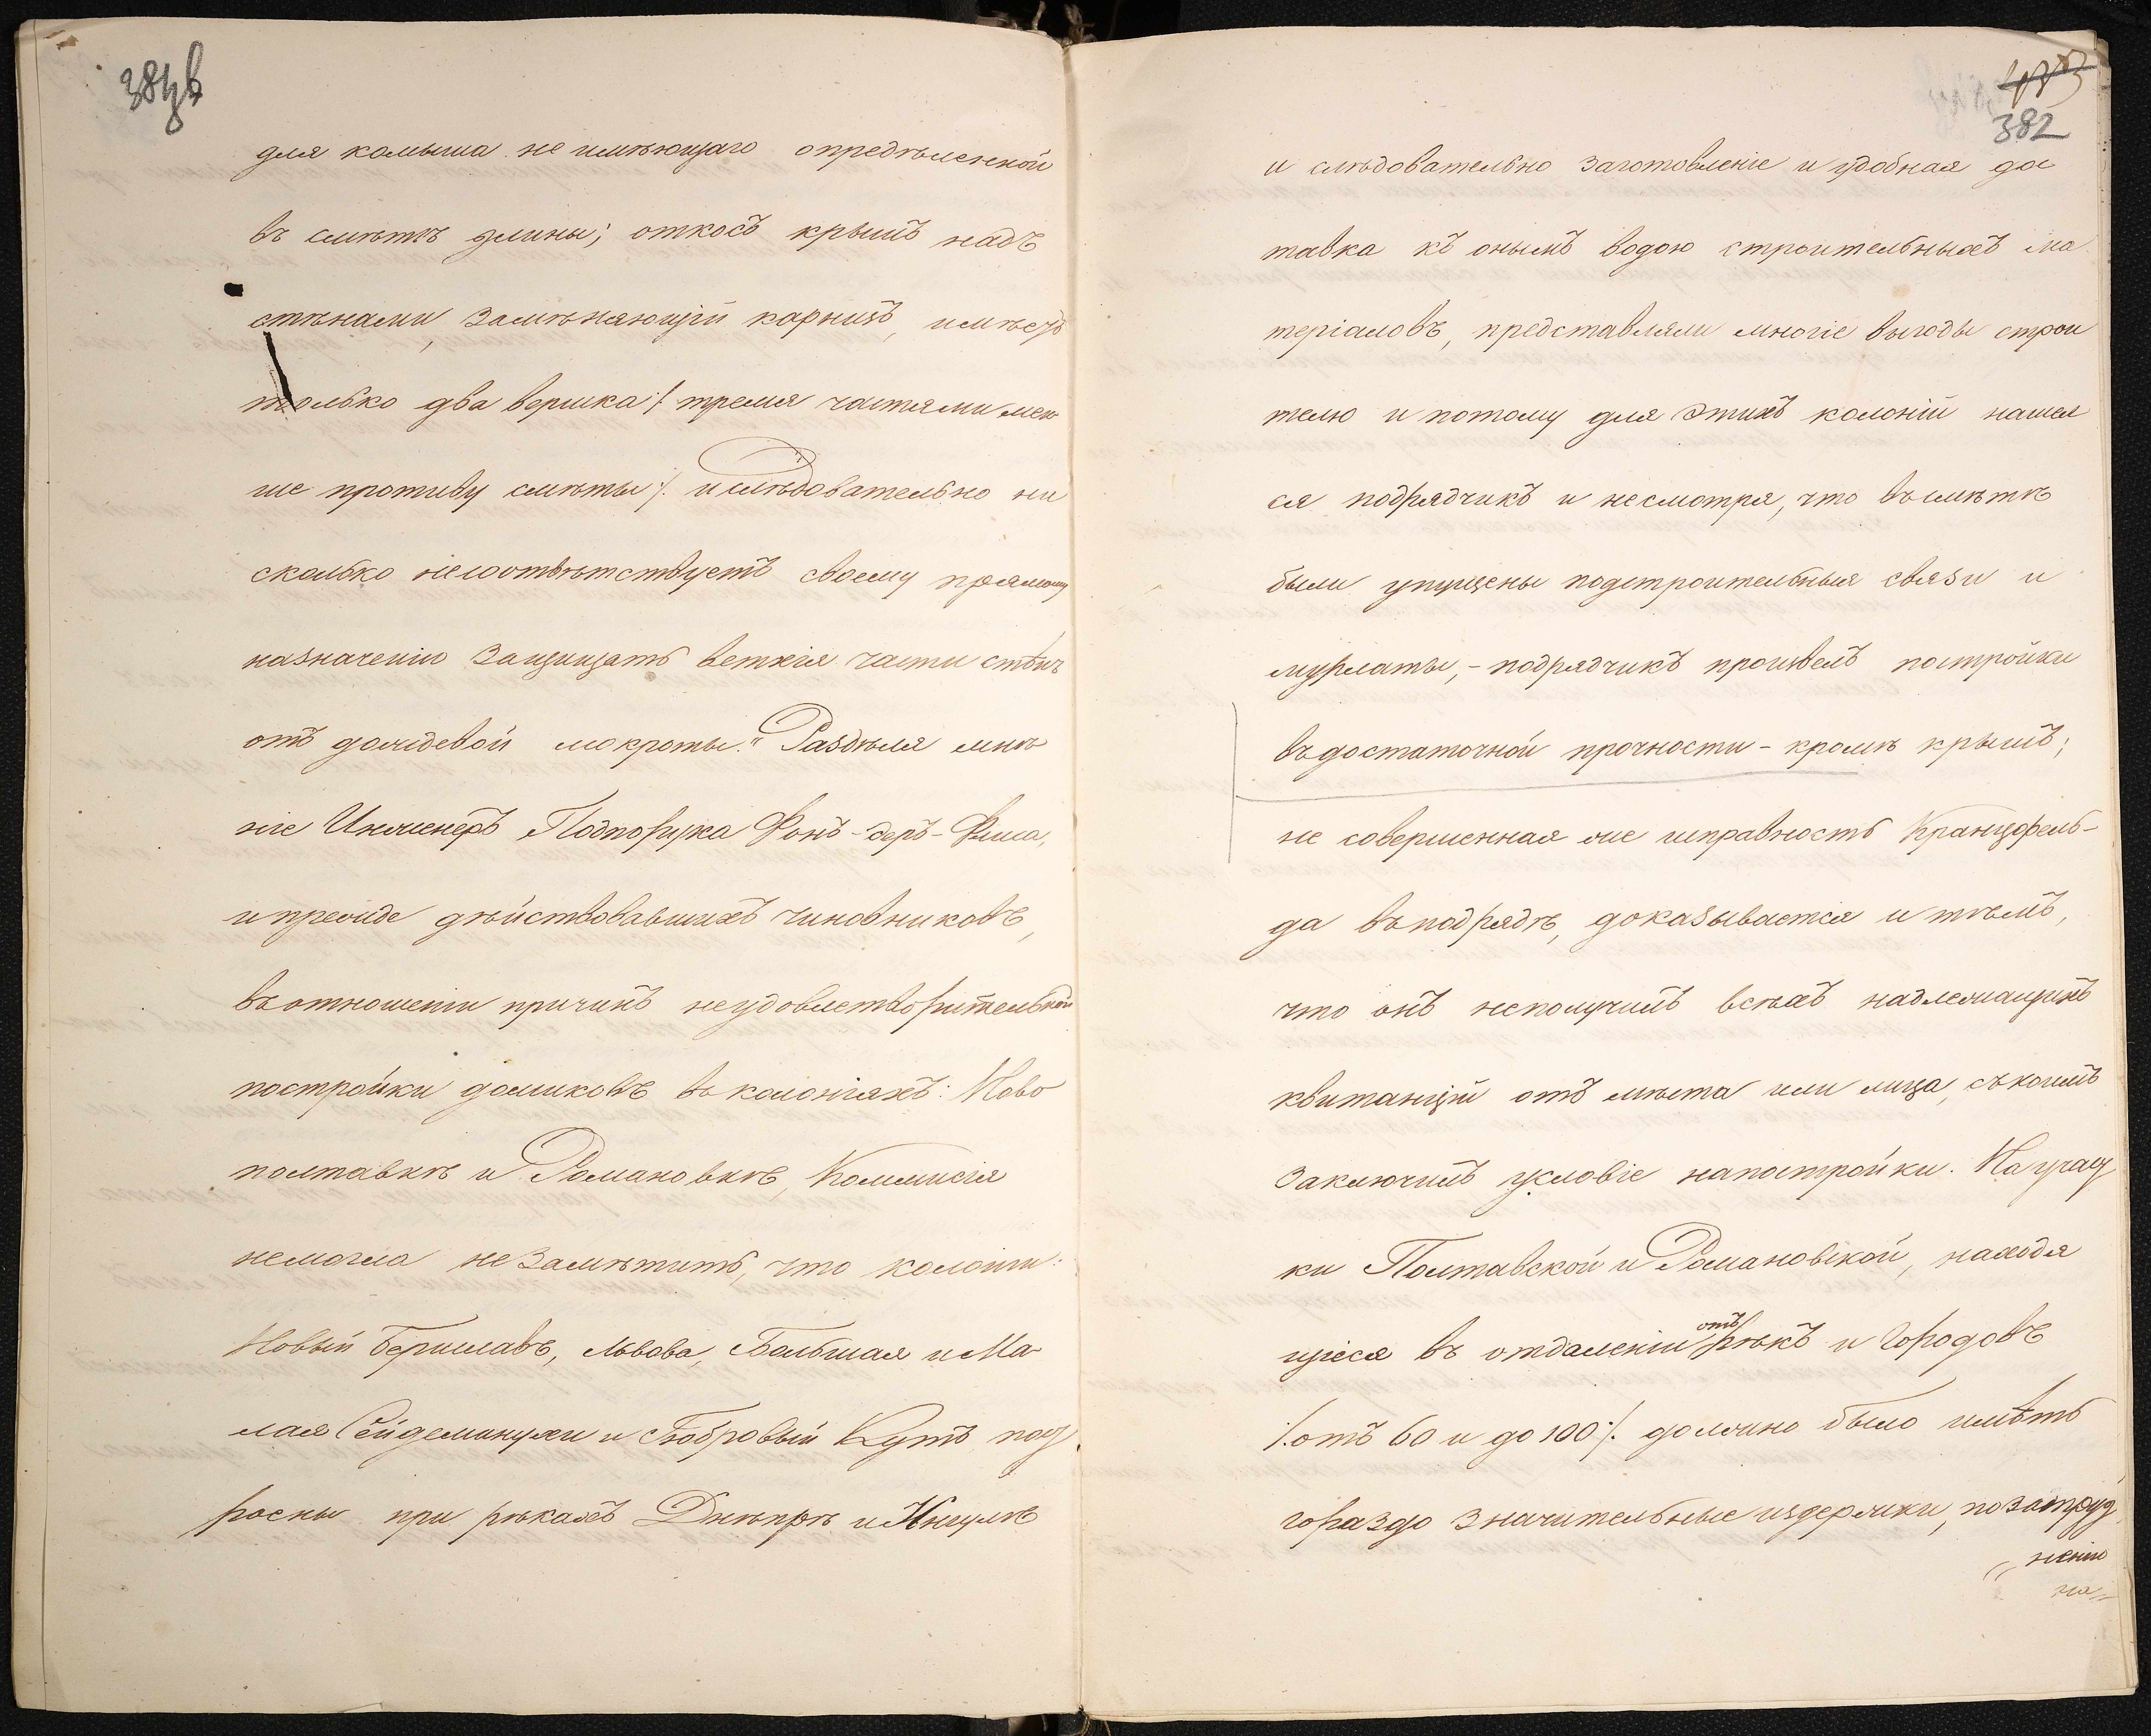 для камыша не имѣющаго опредѣленной
въ смѣтѣ длины; откосъ крышъ надъ
стѣнами, замѣняющій карнизъ, имѣетъ
только два вершка /. тремя частями мен
ше противу смѣты /. и слѣдовательно ни
сколько несоотвѣтствуетъ своему прямому
назначенію защищать ветхія части стѣнъ
отъ дождевой мокроты." Раздѣля мнѣ
ніе Инженеръ Подпоручка Фонъ-деръ-Флиса,
и прежде дѣйствовавшихъ чиновниковъ,
въ отношеніи причинъ неудовлетворительной
постройки домиковъ въ колоніяхъ: Ново
полтавкѣ и Романовкѣ, Коммисія
немогла не замѣтить, что колоніи:
Новый Бериславъ, Львова, Большая и Ма
лая Сейдеминухи и Бобровый Кутъ, под
роены при рѣкахъ Днѣпрѣ и Ингулѣ
382
и слѣдовательно заготовленіе и удобная дос
тавка къ онымъ водою строительныхъ ма
теріаловъ, представляли многіе выгоды строи
телю и потому для этихъ колоній нашел
ся подрядчикъ и несмотря, что въ смѣтѣ
были упущены подстроительныя связи и
мурлаты, - подрядчикъ произвелъ постройки
въ достаточной прочности - кромѣ крышъ;
не совершенная же исправность Кранцфель-
да въ подрядѣ, доказывается и тѣмъ,
что онъ неполучилъ всѣхъ надлежащихъ
квитанцій отъ мѣста или лица, съ коимъ
заключилъ условіе на постройки. На участ
ки Полтавской и Романовской, находя
щіеся въ отдаленіи отъ рѣкъ и Городовъ
/. отъ 60 и до 100 /. должно было имѣть
гораздо значительные издержки, по затруд
ненію
на